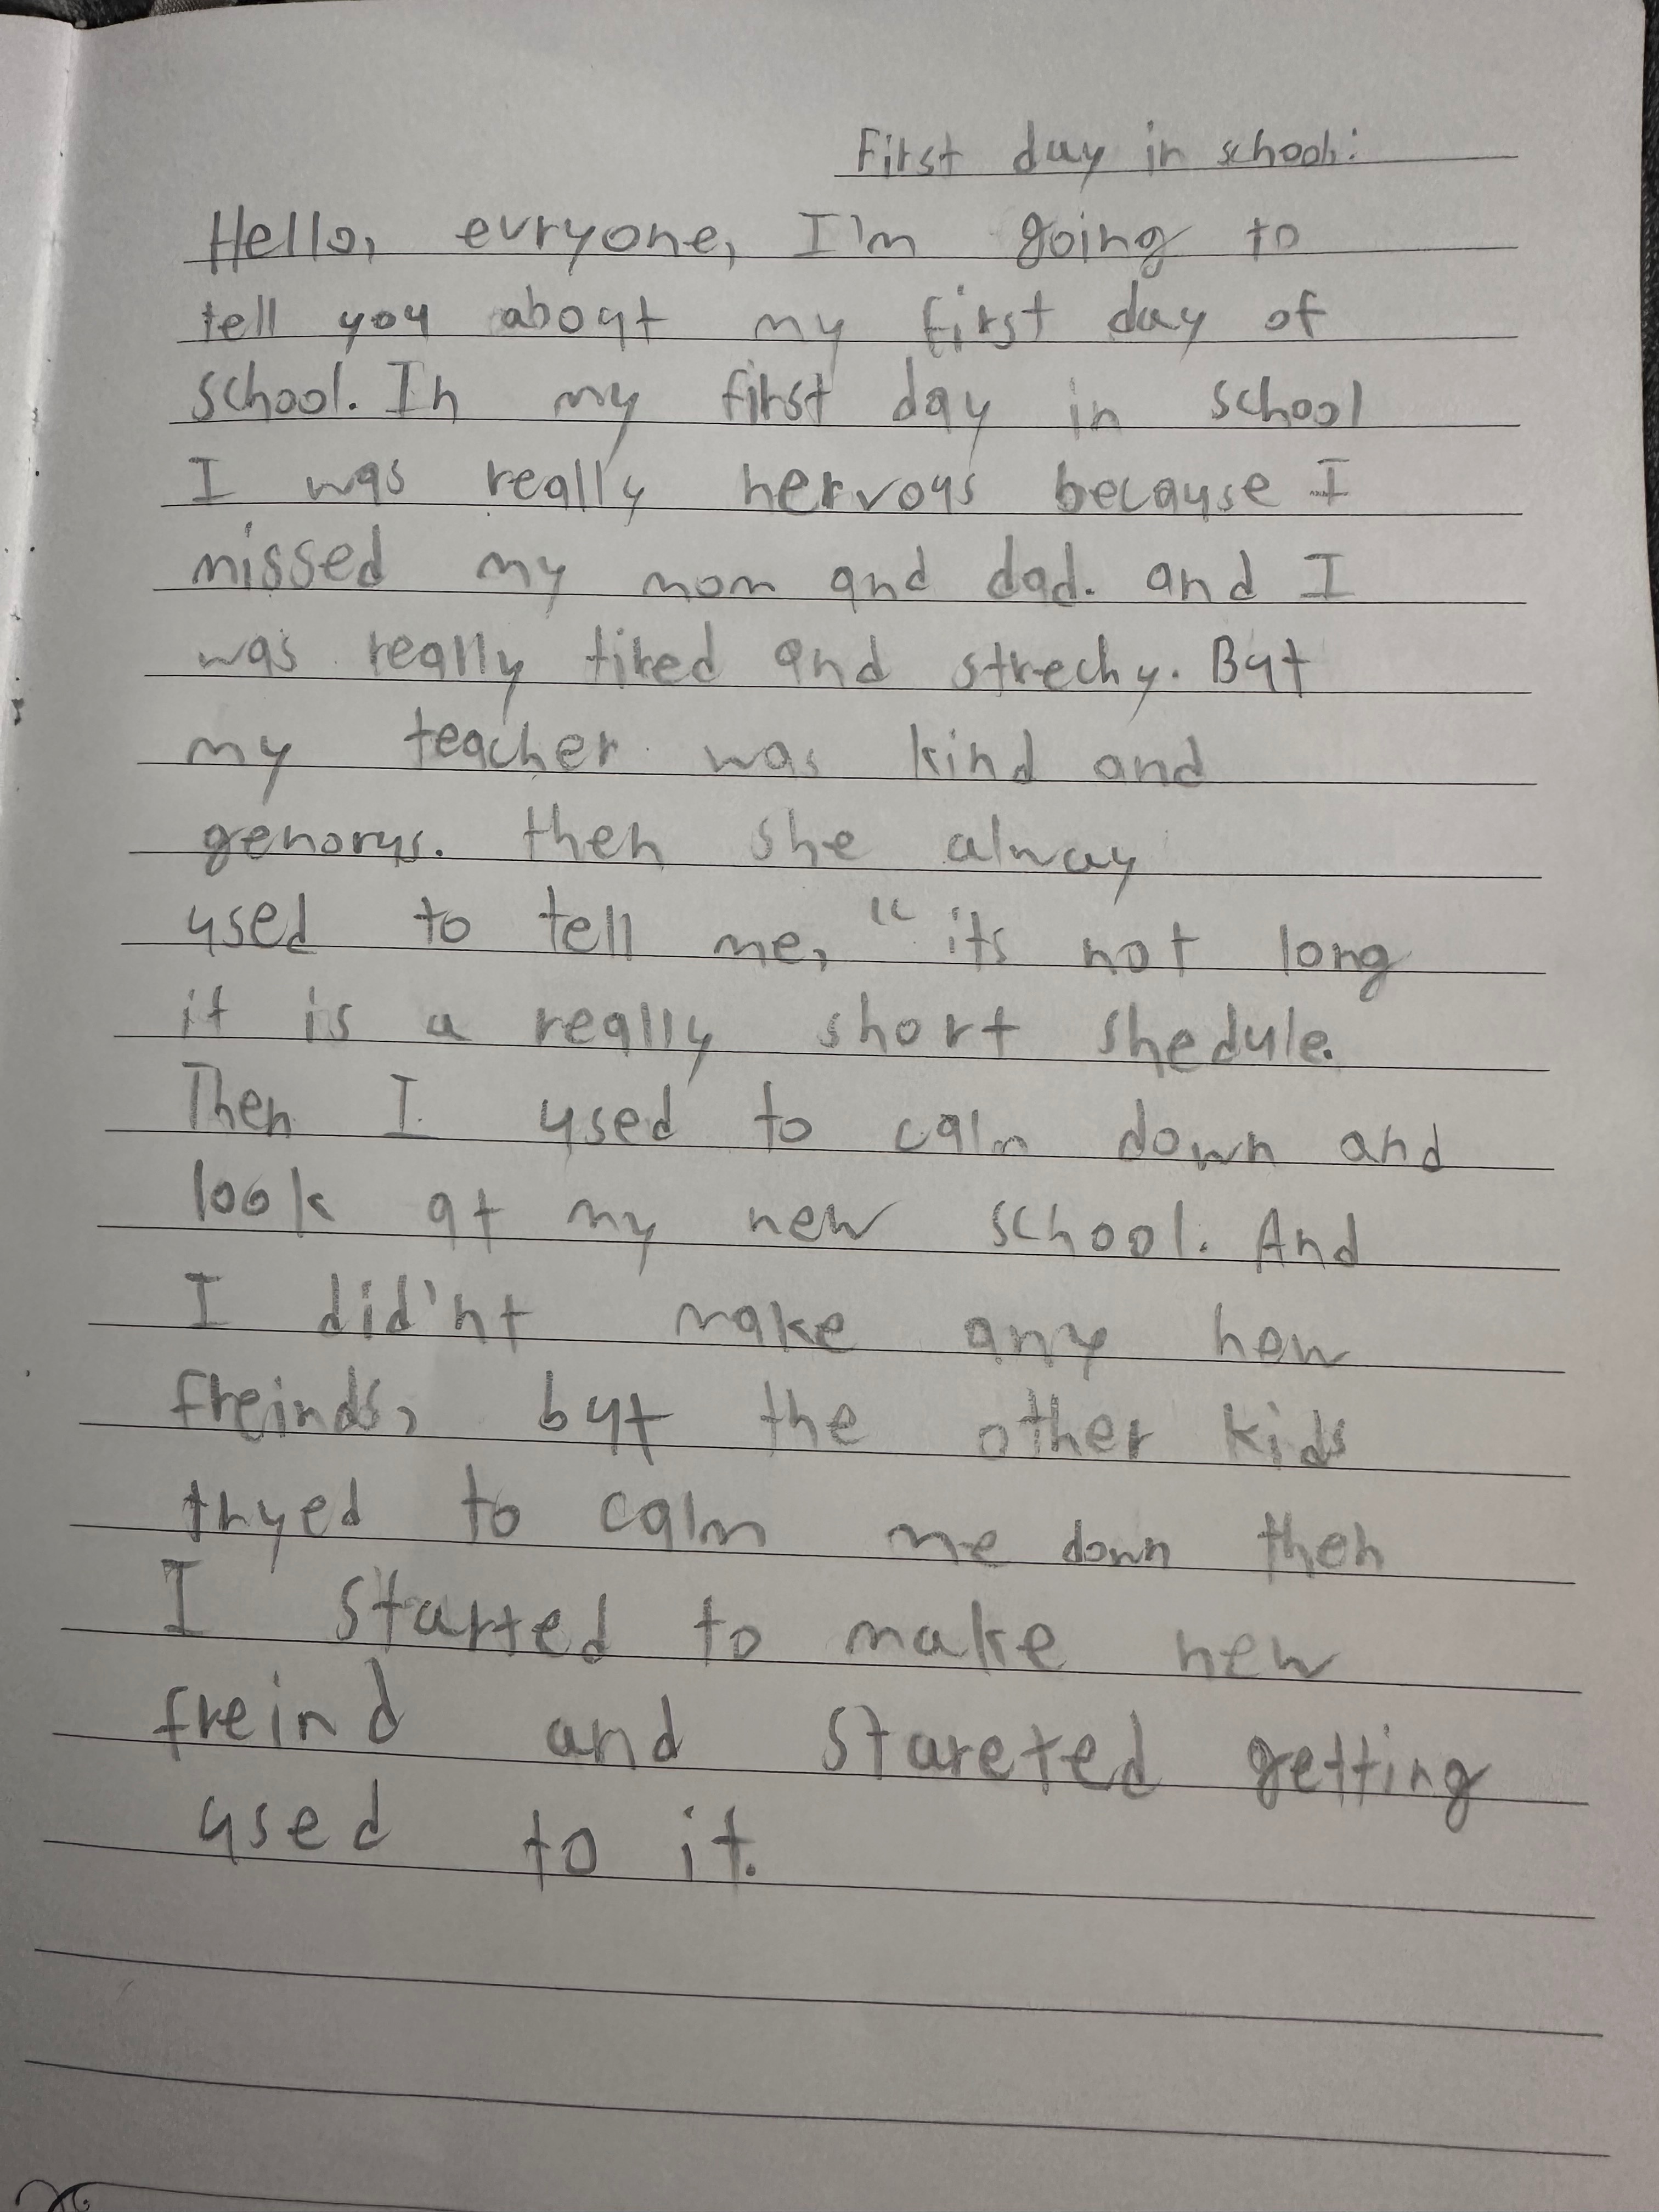 First day in school:
Hello, evryone, I'm going to
tell you about my first day of
school. In my first day in school
I was really nervous because I
missed my mom and dad. and I
was really tired and strechy. But
my teacher was kind and
genorus. then she alway
used to tell me, "its not long
it is a really short shedule.
Then I used to calm down and
look at my new school. And
I did'nt make any new
freinds, but the other kids
tryed to calm me down then
I started to make new
freind and stareted getting
used to it.